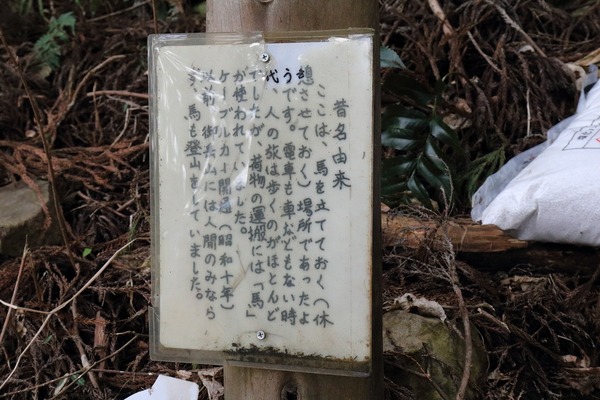 昔名由来
ここは、馬を立てておく（休
憩させておく）場所であったよ
うです。電車も車などもない時
代、人の旅は歩くのがほとんど
でしたが、荷物の運搬には「馬」
が使われていました。
ケーブルカー開通（昭和十年）
以前、御岳山には人間のみなら
ず、馬も登山をしていました。